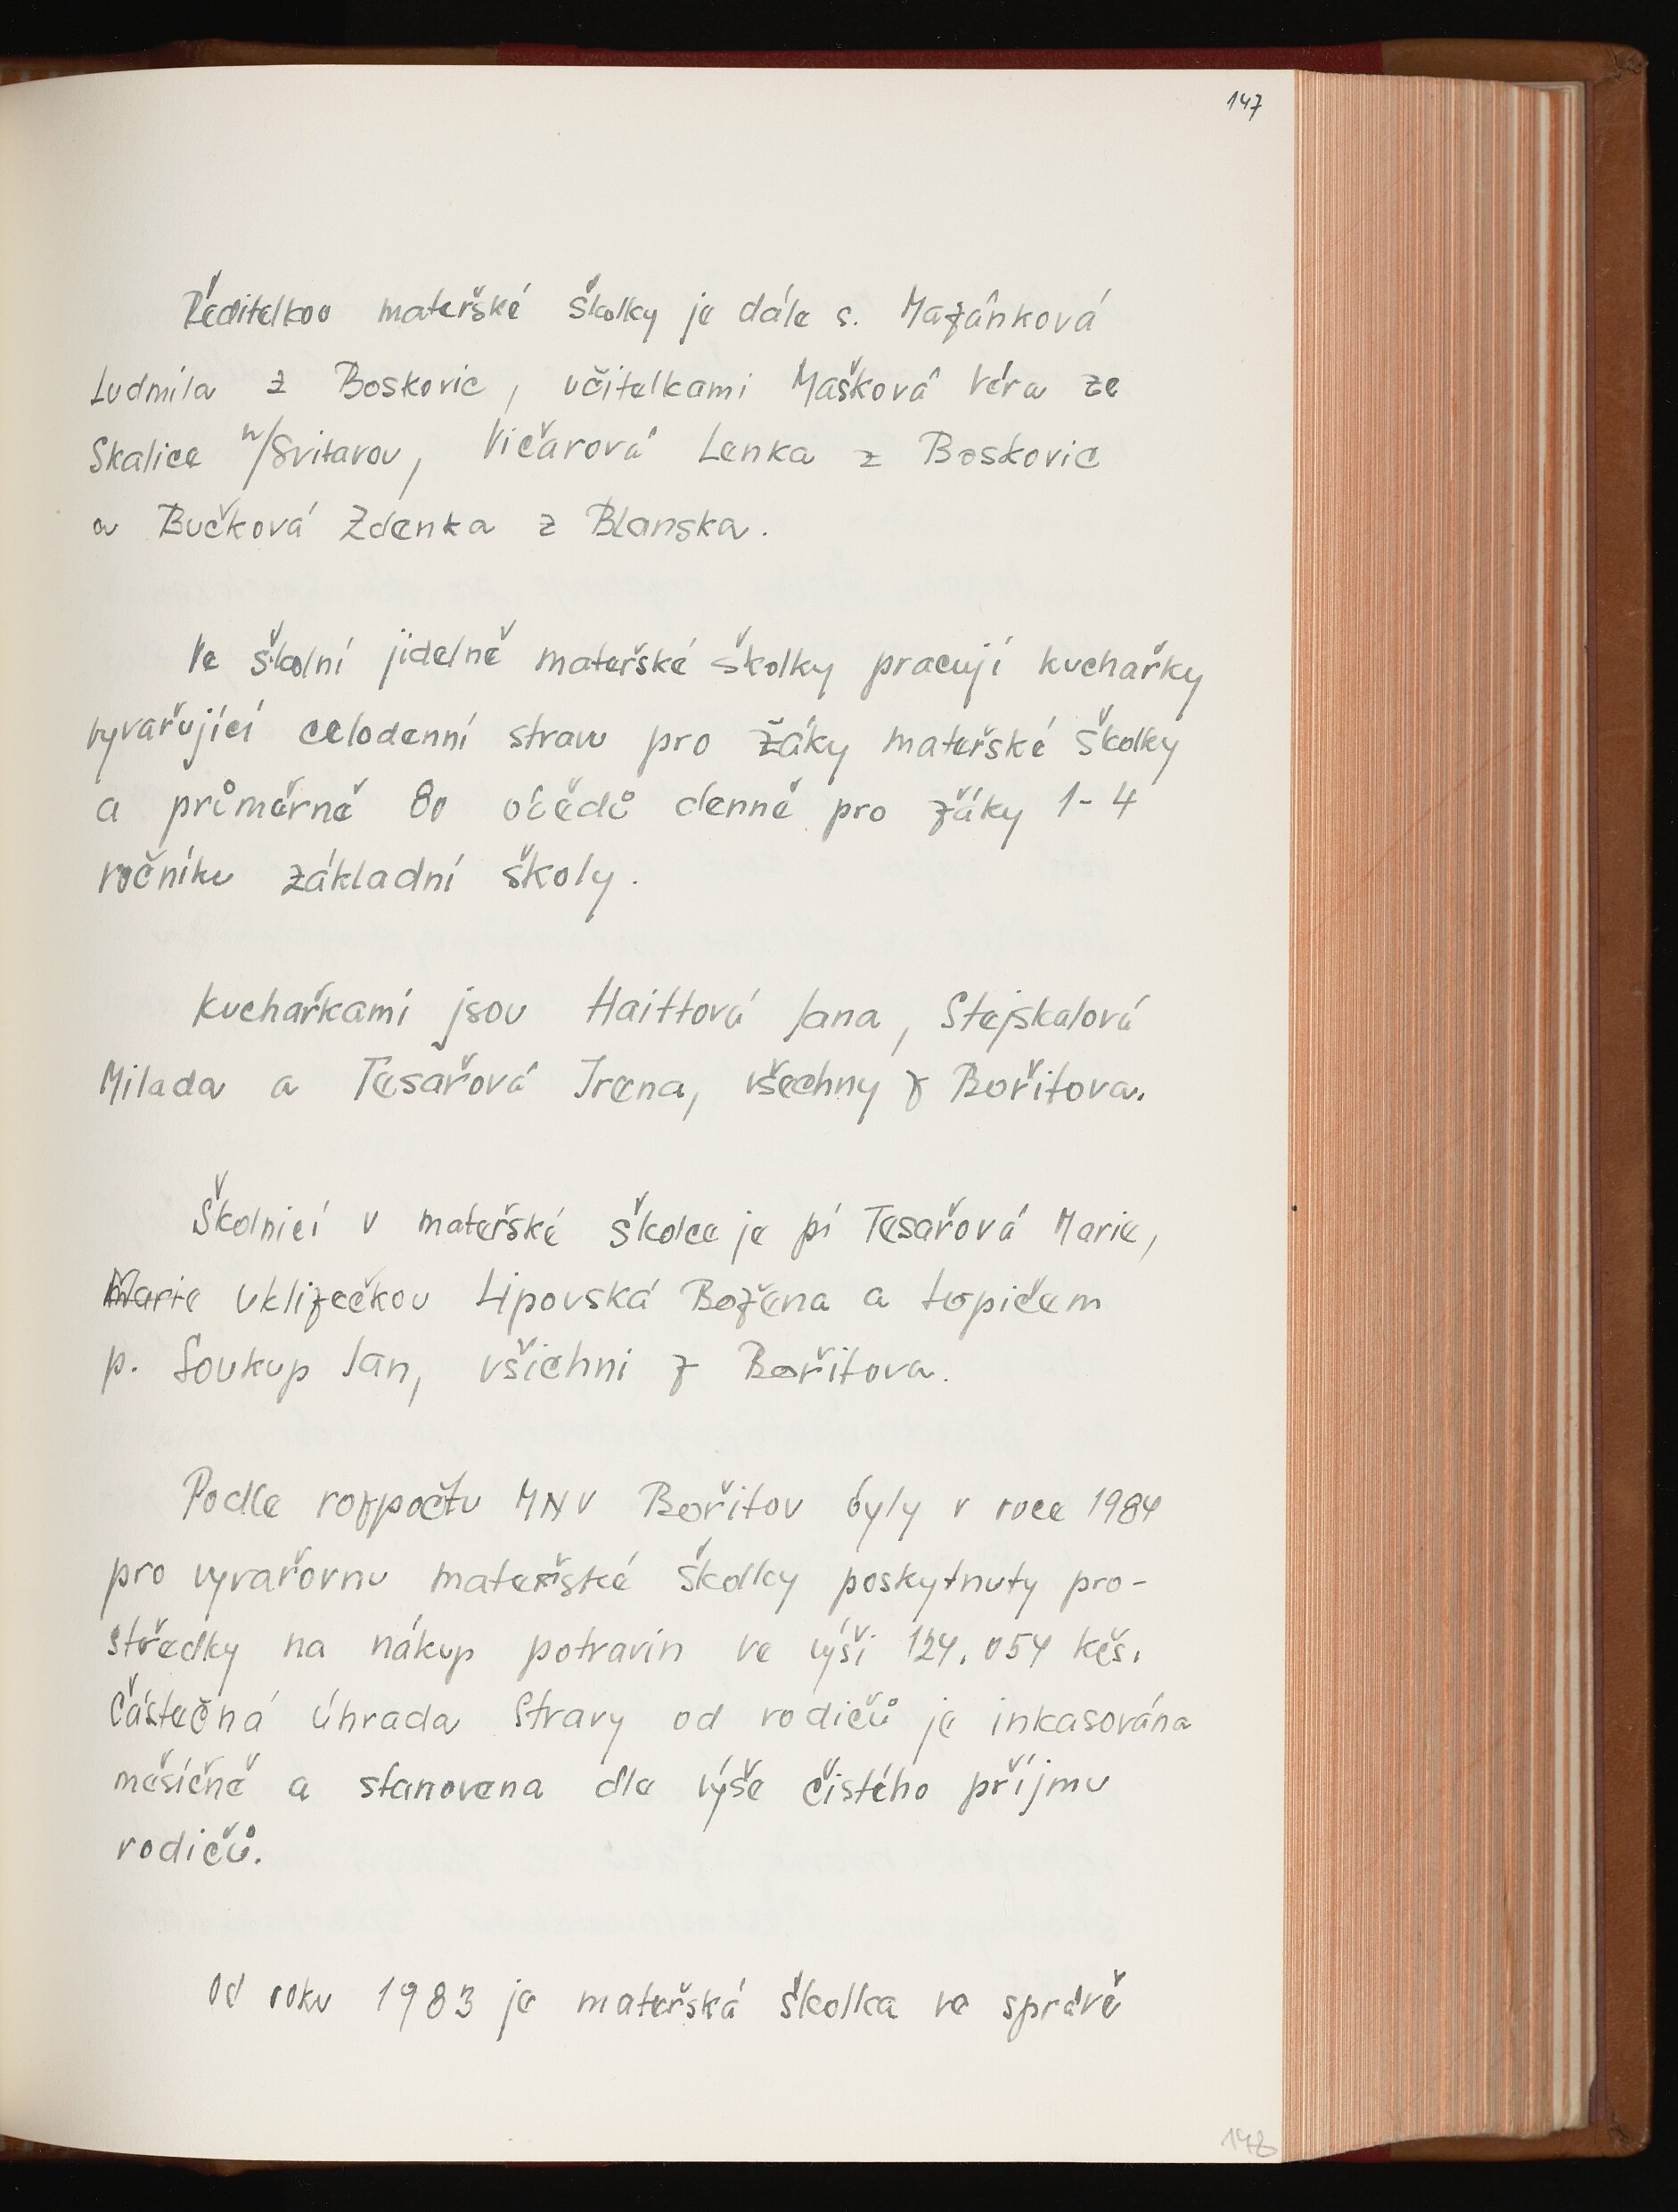 147
Ředitelkou mateřské školky je dále s. Mazánková
Ludmila z Boskovic, učitelkami Mašková Věra ze
Skalice n/Svitavou, Vičarová Lenka z Boskovic
a Bučková Zdenka z Blanska.
Ve školní jídelně mateřské školky pracují kuchařky
vyvařující celodenní stravu pro žáky mateřské školky
a průměrně 80 obědů denně pro žáky 1-4
ročníku základní školy.
Kuchařkami jsou Haittová Jana, Stejskalová
Milada a Tesařová Irena, všechny z Bořitova.
Školnicí v mateřské školce je pí Tesařová Marie,
Marie uklizečkou Lipovská Božena a topičem
p. Soukup Jan, všichni z Bořitova.
Podle rozpočtu MNV Bořitov byly v roce 1984
pro vyvařovnu mateřské školky poskytnuty pro-
středky na nákup potravin ve výši 124.054 Kčs.
Částečná úhrada stravy od rodičů je inkasována
měsíčně a stanovena dle výše čistého příjmu
rodičů.
Od roku 1983 je mateřská školka ve správě
148